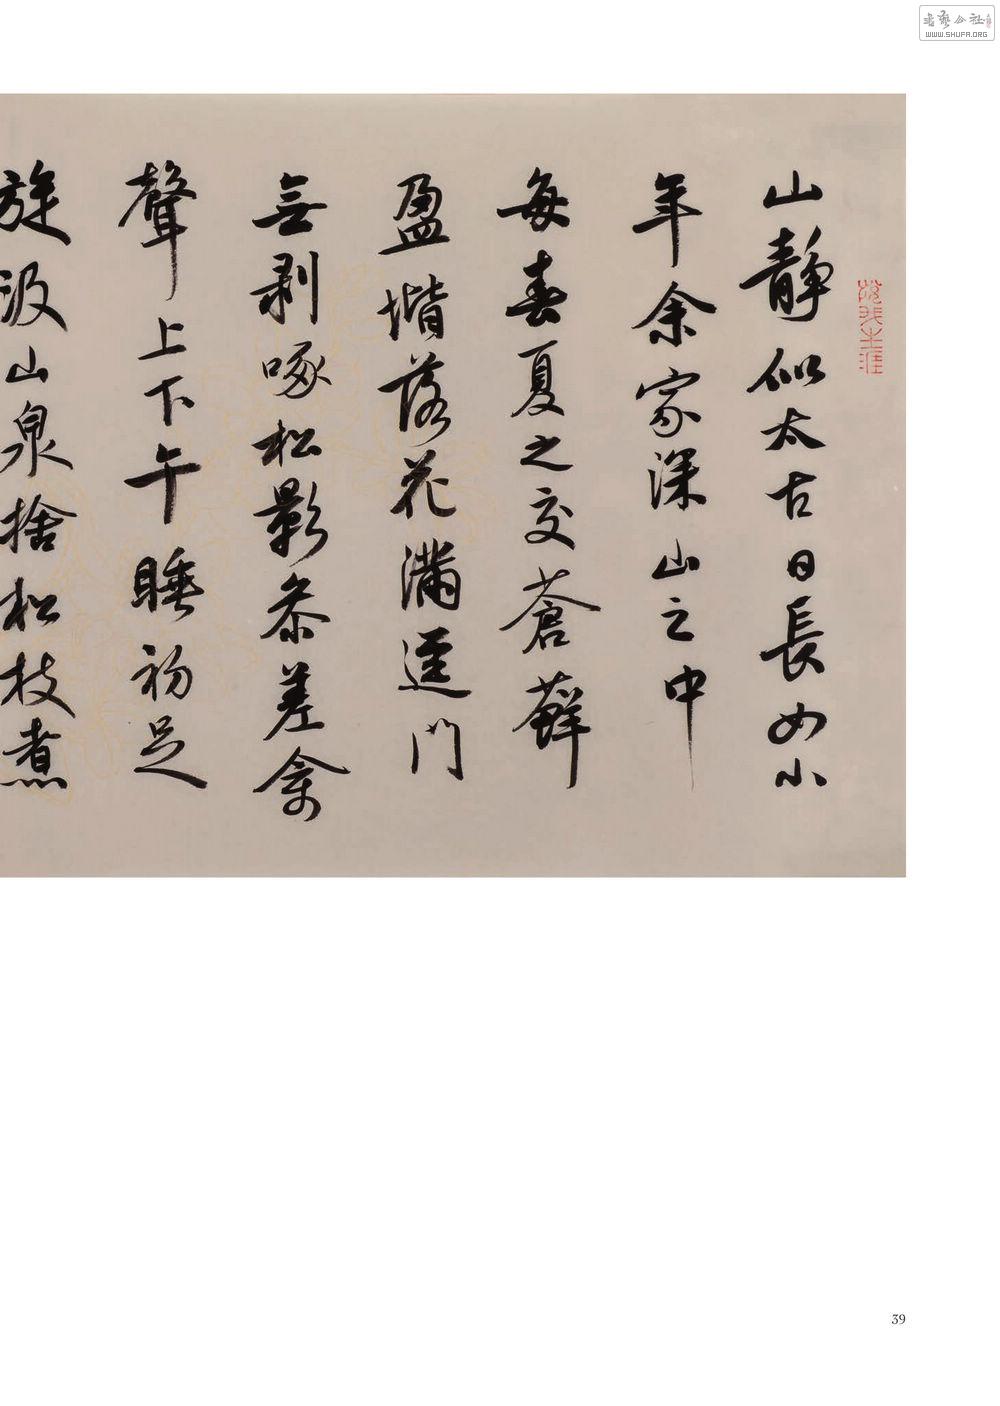 山靜似太古日長如小
年余家深山之中
每春夏之交蒼蘚
盈堦落花滿逕門
無剥啄松影參差禽
聲上下午睡初足
旋汲山泉捨松枝煮
WWW.SHUFA.ORG
39